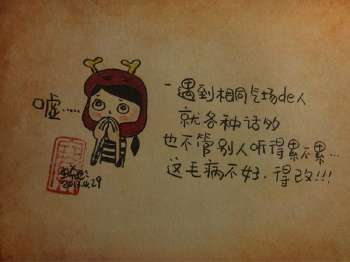 嘘……
一遇到相同气场de人
就各种话多
也不管别人听得累不累…
这毛病不好.得改!!!